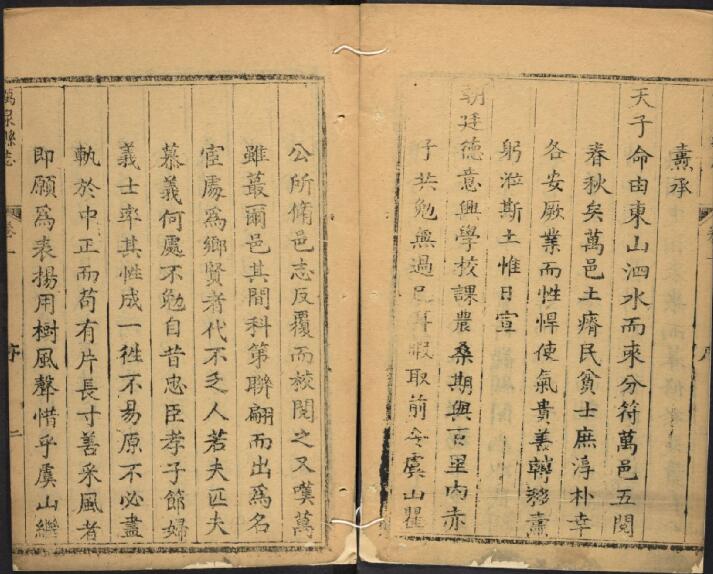 燾承
天子命由東山泗水而來分符萬邑五閱
春秋矣萬邑土瘠民貧士庶淳朴幸
各安厥業而性悍使氣貴善轉移燾
躬涖斯土惟日宣
朝廷德意興學校課農桑期與百里內赤
子共勉無過已耳暇取前令虞山瞿
公所脩邑志反覆而校閱之又嘆萬
雖蕞爾邑其間科第聯翩而出爲名
宦爲鄉賢者代不乏人若夫匹夫
慕義何處不勉自昔忠臣孝子節婦
義士率其性成一徃不易原不必盡
軌於中正而苟有片長寸善采風者
即願爲表揚用樹風聲惜乎虞山繼
萬泉縣志
卷一
序
二